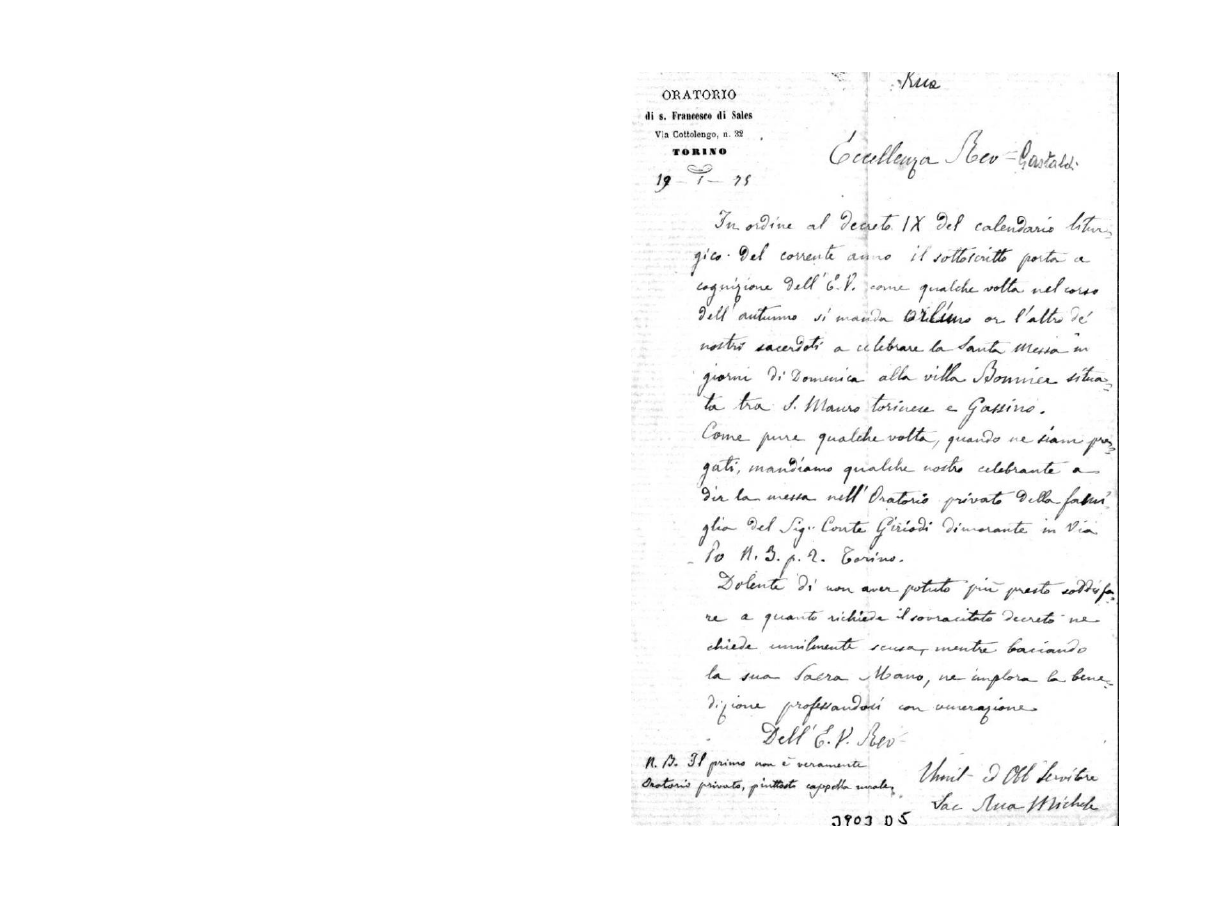 Rua
ORATORIO
di s. Francesco di Sales
Via Cottolengo, n. 32
TORINO
19 - 1 - 75
Eccellenza Rev - Gastaldi
In ordine al decreto IX del calendario litur=
gico del corrente anno il sottoscritto porta a
cognizione dell'E.V. come qualche volta nel corso
dell'autunno si manda or l'uno or l'altro de'
nostri sacerdoti a celebrare la Santa Messa in
giorni di Domenica alla villa Bonnier situa=
ta tra S. Mauro torinese e Gassino.
Come pure qualche volta, quando ne siam pre=
gati, mandiamo qualche nostro celebrante a
dir la messa nell'Oratorio privato della fami
glia del Sig. Conte Giriodi dimorante in Via
Po N. 3. p. 2. Torino.
Dolente di non aver potuto più presto soddisfa=
re a quanto richiede il sovracitato decreto ne
chiede umilmente scusa, mentre baciando
la sua Sacra Mano, ne implora la bene=
dizione professandosi con venerazione
Dell'E.V. Rev
N. B. Il primo non è veramente
Oratorio privato, piuttosto cappella rurale,
Umil - ed Obb Servitore
Sac Rua Michele
3903 D5